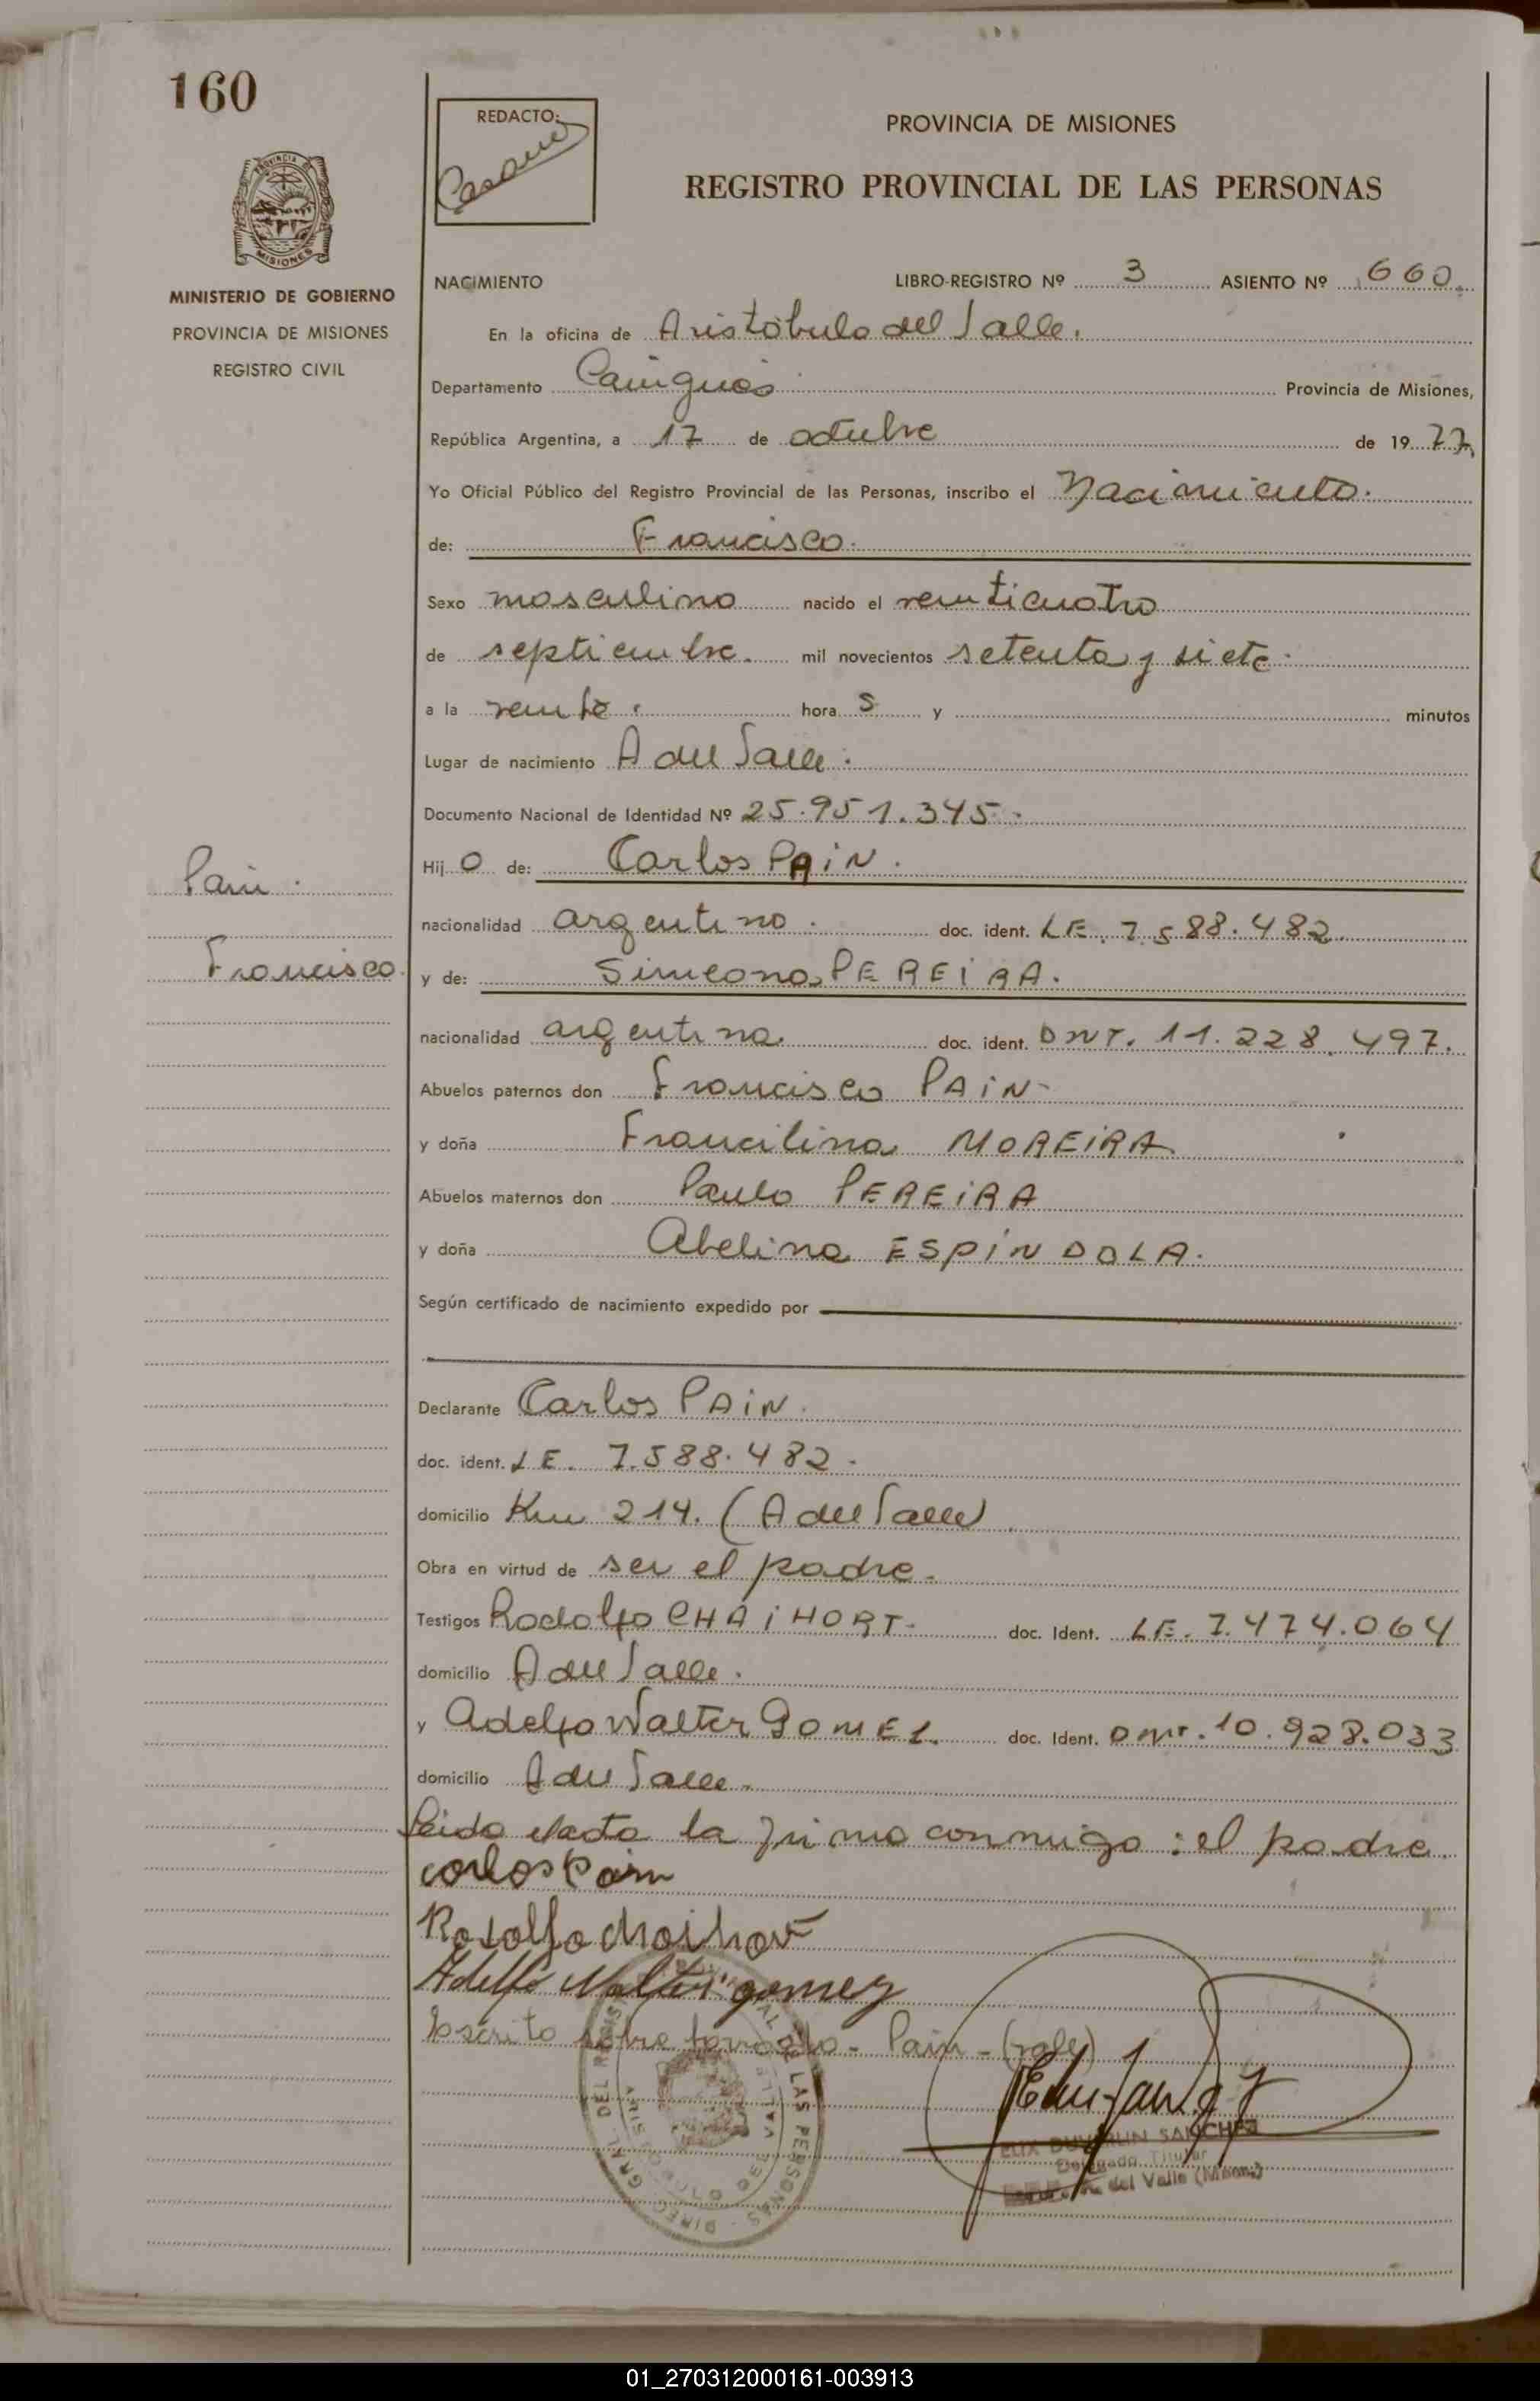 160
REDACTO:
PROVINCIA DE MISIONES
REGISTRO PROVINCIAL DE LAS PERSONAS
PROVINCIA DE
MISIONES
MINISTERIO DE GOBIERNO
PROVINCIA DE MISIONES
REGISTRO CIVIL
NACIMIENTO LIBRO-REGISTRO Nº 3 ASIENTO Nº 660.
En la oficina de Aristóbulo del Valle.
Departamento Cainguás Provincia de Misiones,
República Argentina, a 17 de octubre de 1977,
Yo Oficial Público del Registro Provincial de las Personas, inscribo el Nacimiento.
de: Francisco.
Sexo masculino nacido el venticuatro
de septiembre. mil novecientos setenta y siete.
a la vente. hora s y minutos
Lugar de nacimiento A del Valle.
Documento Nacional de Identidad Nº 25.951.345.
Hij o de: Carlos PAiN.
Pain.
nacionalidad argentino. doc. ident. LE. 7.588.482.
Francisco.
y de: Simeona PEREiRA.
nacionalidad argentina doc. ident. DNI. 11.228.497.
Abuelos paternos don Francisco PAiN
y doña Francilina MOREiRA
Abuelos maternos don Paulo PEREiRA
y doña Abelina ESPiNDOLA.
Según certificado de nacimiento expedido por
Declarante Carlos PAiN.
doc. ident. LE. 7.588.482.
domicilio Km 214. (A del Valle)
Obra en virtud de ser el padre.
Testigos Rodolfo CHAiHORT. doc. Ident. LE. 7.474.064
domicilio A del Valle.
y Adelfo Walter GOMEZ. doc. Ident. DNI. 10.928.033
domicilio A del Valle.
Leida el acta la firma conmigo: el padre.
Carlos Pain
Rodolfo
Adelfo Walter gomez
Escrito sobre borrado - Pain - (vale)
SANCHEZ
Delegado Titular
del Valle (Mnes.)
01_270312000161-003913